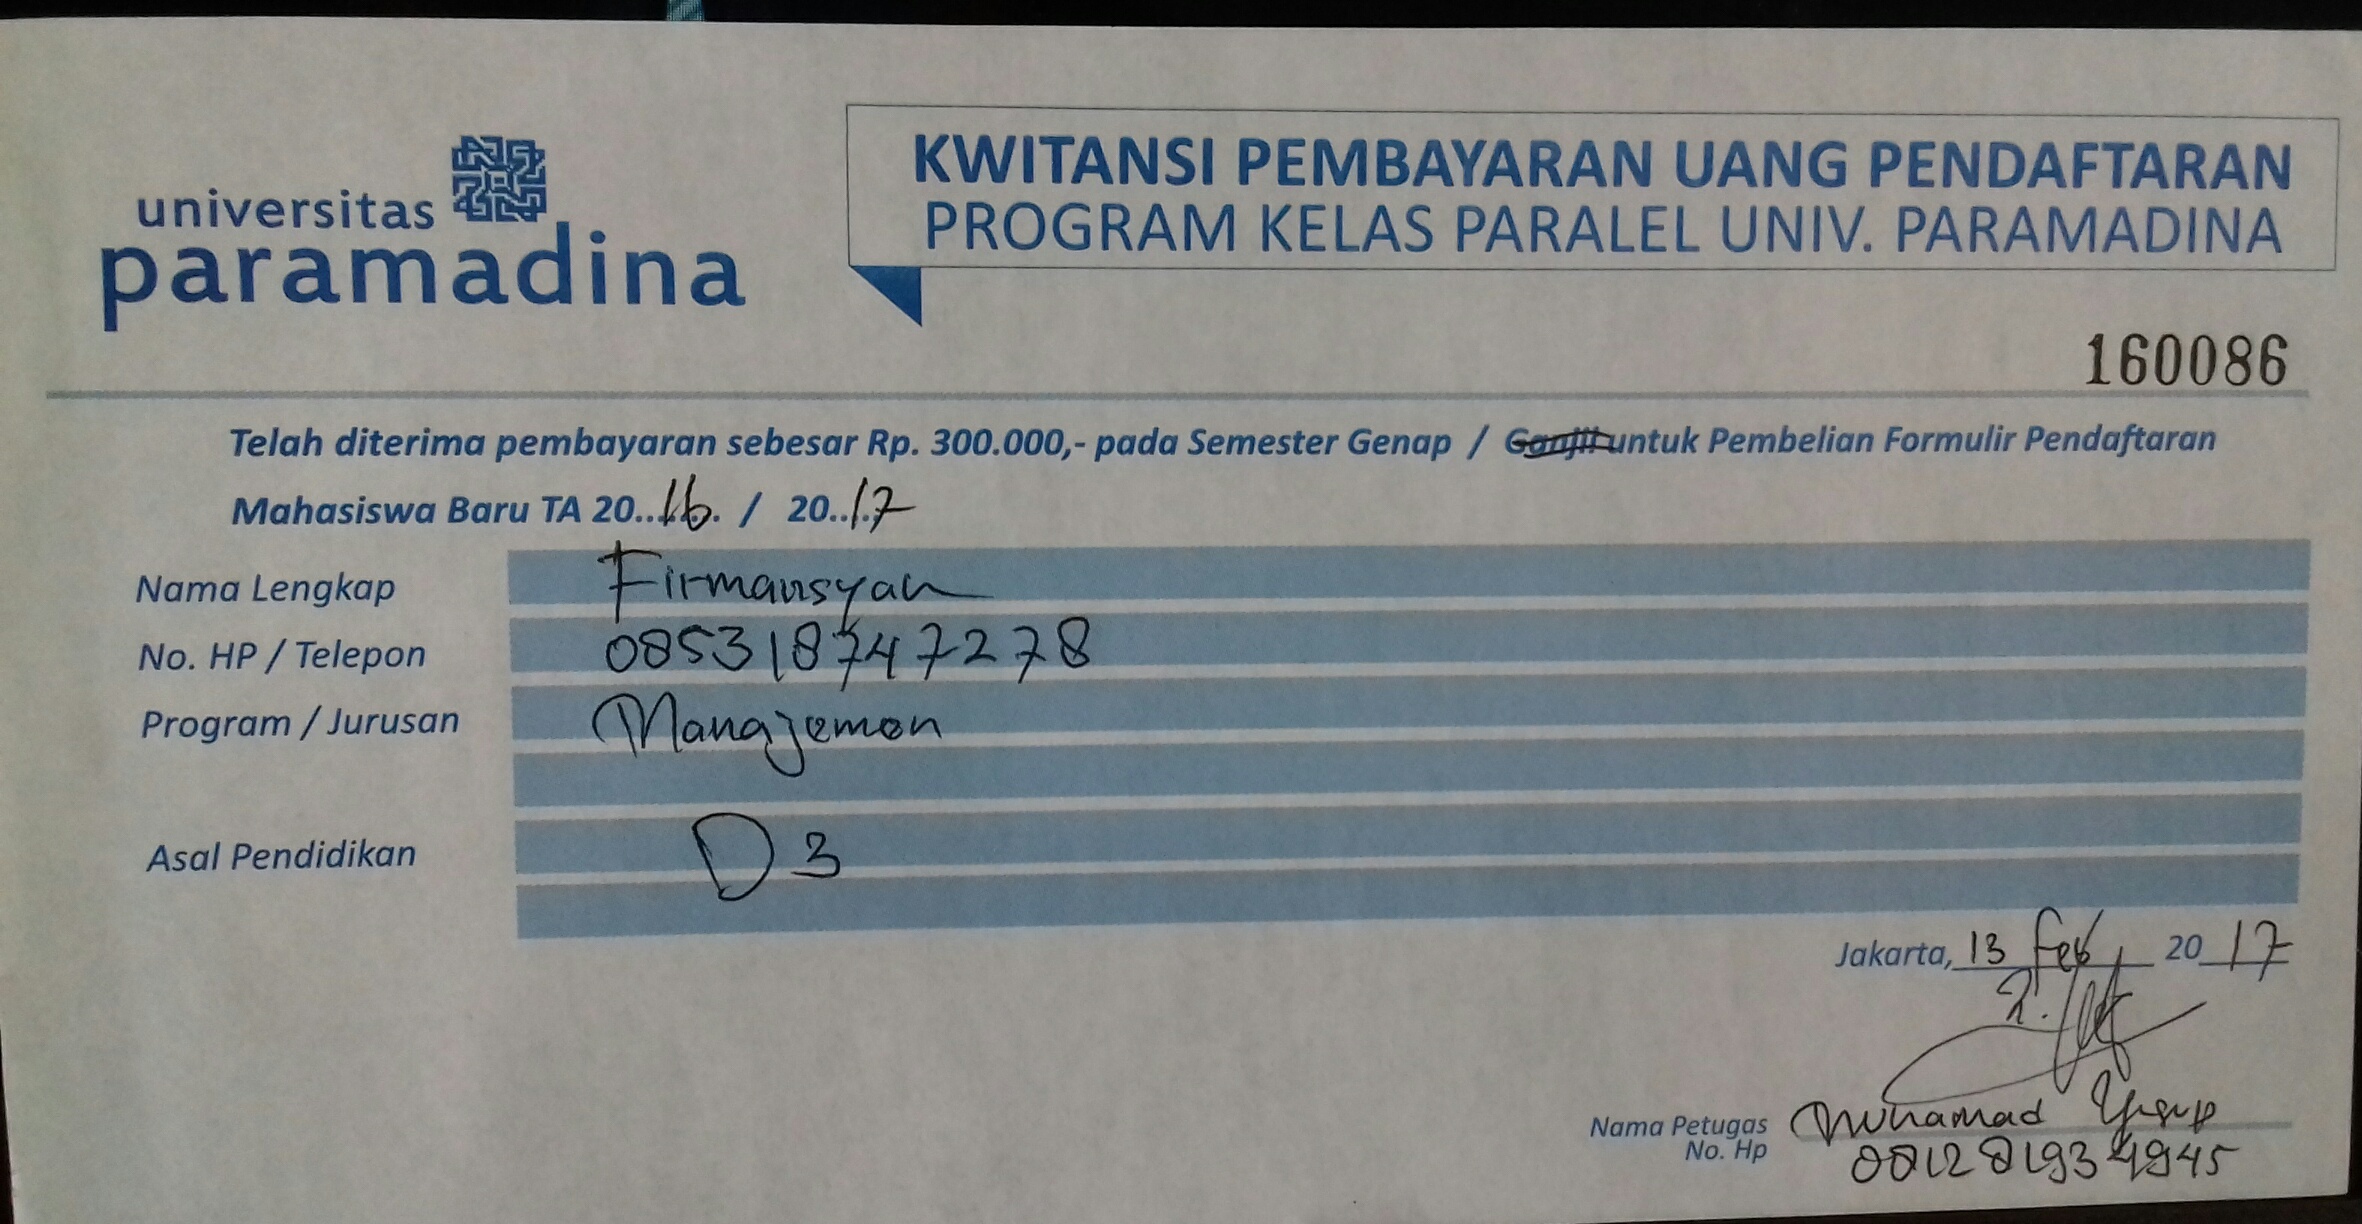 universitas
paramadina
KWITANSI PEMBAYARAN UANG PENDAFTARAN
PROGRAM KELAS PARALEL UNIV. PARAMADINA
160086
Telah diterima pembayaran sebesar Rp. 300.000,- pada Semester Genap / Ganjil untuk Pembelian Formulir Pendaftaran
Mahasiswa Baru TA 20..16.. / 20..17
Nama Lengkap Firmansyah
No. HP / Telepon 085318747278
Program / Jurusan Manajemen
Asal Pendidikan D3
Jakarta, 13 Feb 2017
Nama Petugas Muhamad Yusup
No. Hp